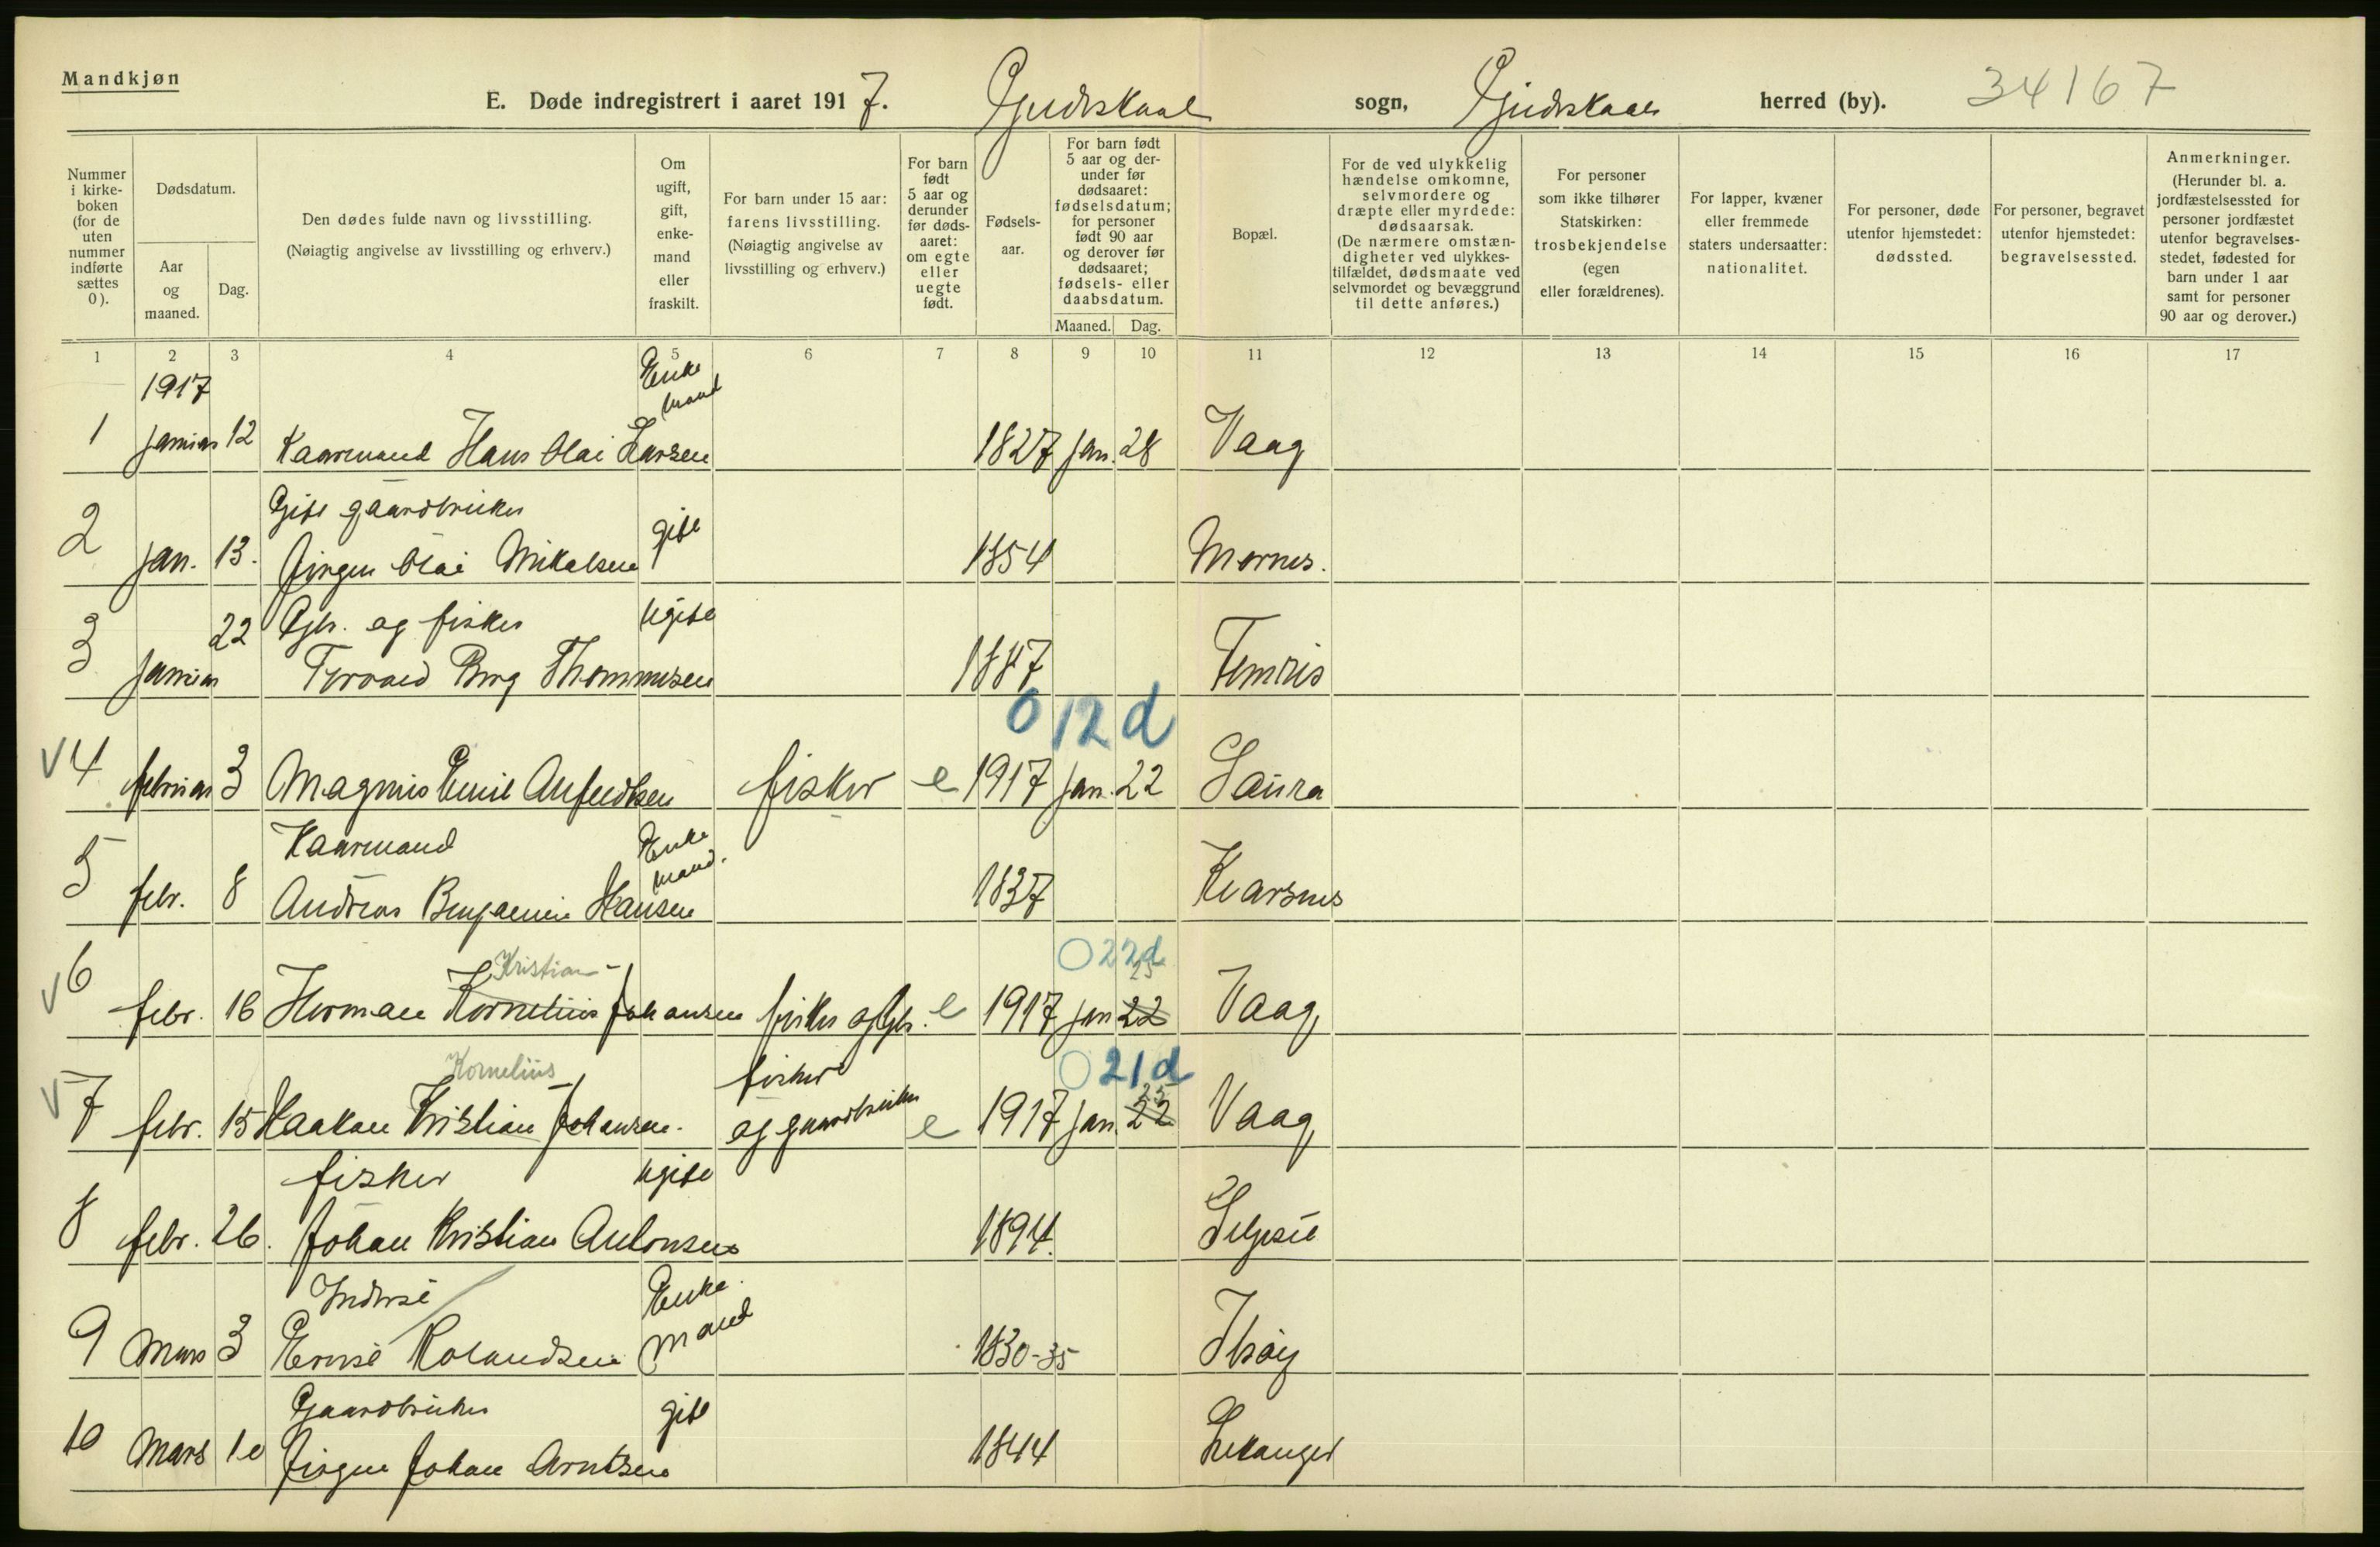 Mandkjøn
E. Døde indregistrert i aaret 1917. Gjildeskaal sogn, Gjildeskaal herred (by). 34167
Nummer i kirke-boken (for de uten nummer indførte sættes 0).
Dødsdatum.
Aar og maaned.
Dag.
Den dødes fulde navn og livsstilling.
(Nøiagtig angivelse av livsstilling og erhverv.)
Om ugift, gift, enke-mand eller fraskilt.
For barn under 15 aar: farens livsstilling.
(Nøiagtig angivelse av livsstilling og erhverv.)
For barn født 5 aar og derunder før døds-aaret: om egte eller uegte født.
Fødsels-aar.
For barn født 5 aar og der-under før dødsaaret: fødselsdatum; for personer født 90 aar og derover før dødsaaret; fødsels- eller daabsdatum.
Maaned. Dag.
Bopæl.
For de ved ulykkelig hændelse omkomne, selvmordere og dræpte eller myrdede: dødsaarsak.
(De nærmere omstæn-digheter ved ulykkes-tilfældet, dødsmaate ved selvmordet og bevæggrund til dette anføres.)
For personer som ikke tilhører Statskirken: trosbekjendelse (egen eller forældrenes).
For lapper, kvæner eller fremmede staters undersaatter: nationalitet.
For personer, døde utenfor hjemstedet: dødssted.
For personer, begravet utenfor hjemstedet: begravelsessted.
Anmerkninger.
(Herunder bl. a. jordfæstelsessted for personer jordfæstet utenfor begravelses-stedet, fødested for barn under 1 aar samt for personer 90 aar og derover.)
1 2 3 4 5 6 7 8 9 10 11 12 13 14 15 16 17
1917 Enke mand
1 januar 12 Kaarmand Hans Olai Larsen 1827 jan. 28 Vaag
Gift gaardbruker
2 jan. 13. Jørgen Olai Mikalsen gift 1854 Mornes.
22 Gbr. og fisker ugift
3 januar Torvald Berg Thommesen 1887 Femris
0 12 d
V 4 februar 3 Magnus Emil Anfindsen fisker e 1917 jan. 22 Saura
Kaarmand Enke mand.
5 febr. 8 Andreas Benjamin Hansen 1837 Kvarsnes
Kristian 0 22 d 25
V 6 febr. 16 Herman Kornelius Johansen fisker og Gbr. e 1917 jan 22 Vaag
Kornelius fisker 0 21 d 25
V 7 febr. 15 Haakon Kristian Johansen. og gaardbruker e 1917 jan. 22 Vaag
fisker ugift
8 febr. 26. Johan Kristian Antonsen 1894.
Inderst Enke
9 Mars 3 Rolandsen mand 1830-35
Gaardbruker gift
10 Mars 10 Jørgen Johan Arntsen 1844 Lekanger